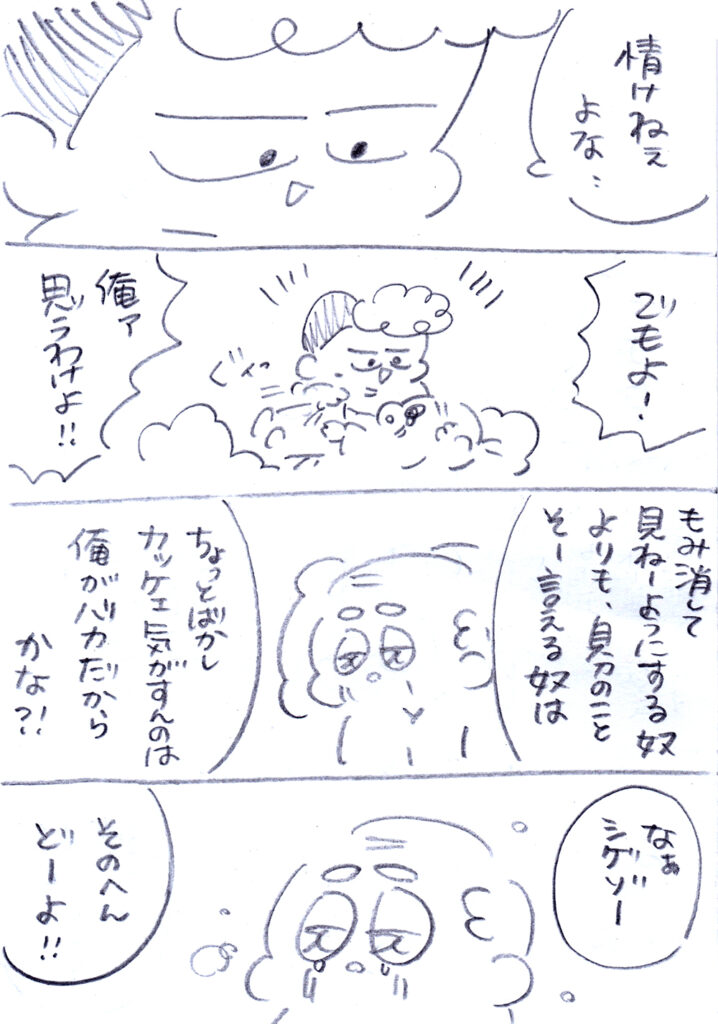 情けねぇ
よな…
でもよ！
ぐいっ
俺ァ
思うわけよ!!
もみ消して
見ねーようにする奴
よりも、負のこと
そー言える奴は
ちょっとばかし
カッケェ気がすんのは
俺がバカだから
かな?!
なぁ
シゲゾー
そのへん
どーよ!!